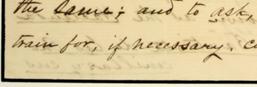 the same; and to ask,
train for, if necessary. c